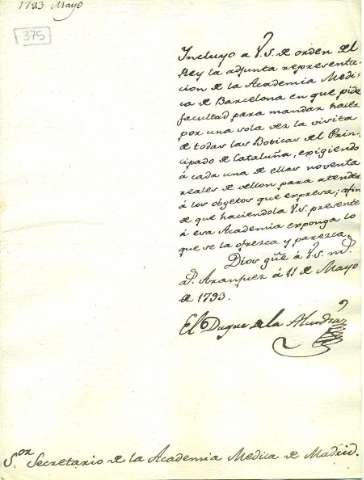 1793 Mayo
375
Incluyo a V.S. de orden del
Rey la adjunta represent.a
cion de la Academia Medi-
ca de Barcelona en que pide
facultad para mandar hacer
por una sola vez la visita
de todas las Boticas del Prin-
cipado de Cataluña, exigiendo
á cada una de ellas noventa
reales de vellon para atender
á los objetos que expresa; afin
de que haciendola V.S. presente
á esa Academia exponga lo
que se la ofrezca y parezca.
Dios gûe á V.S. m.s
a.s Aranjuez á 11 de Mayo
de 1793.
El Duque de la Alcudia
S.or Secretario de la Academia Medica de Madrid.